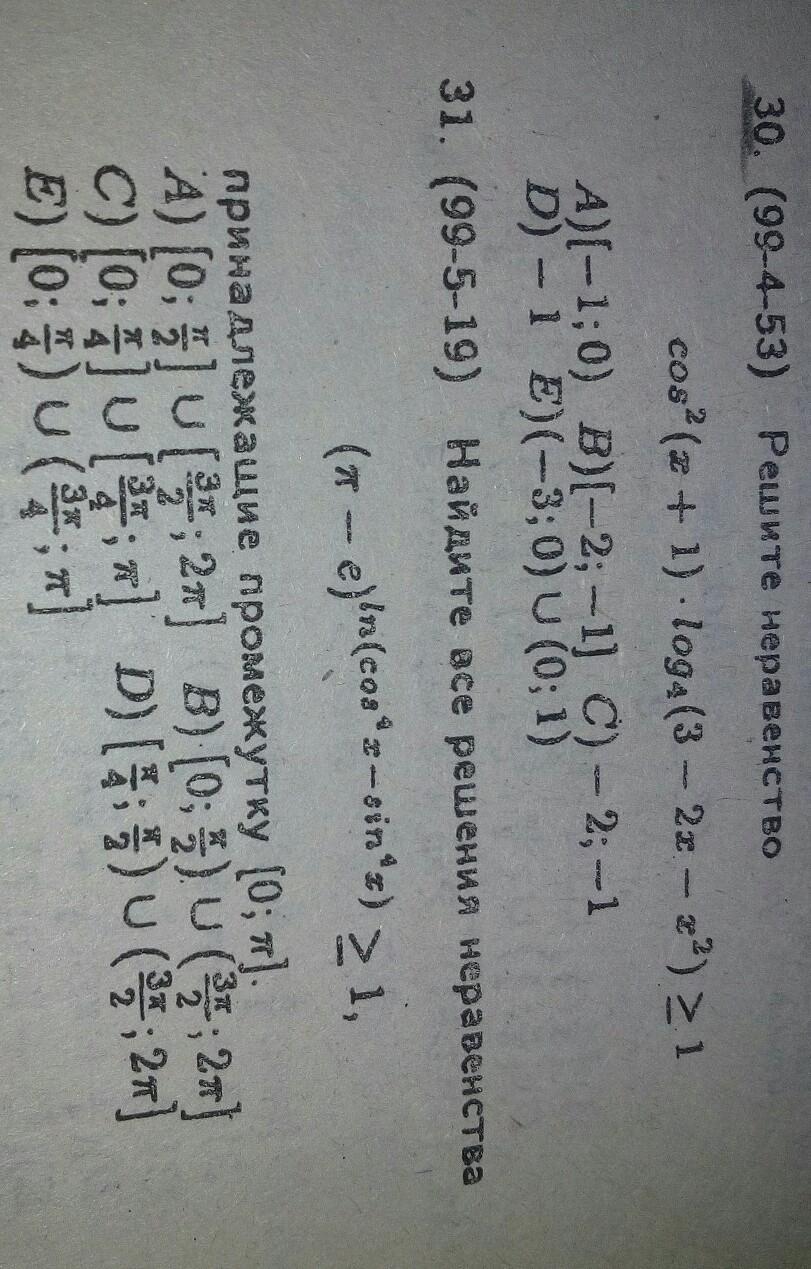 30. (99-4-53) Решите неравенство
cos²(x + 1) · log₄(3 − 2x − x²) ≥ 1
A)[−1; 0) B)[−2; −1] C) − 2; −1
D) − 1 E)(−3; 0) ∪ (0; 1)
31. (99-5-19) Найдите все решения неравенства
(π − e)^ln(cos⁴x−sin⁴x) ≥ 1,
принадлежащие промежутку [0; π].
A) [0; π/2] ∪ [3π/2; 2π] B) [0; π/2) ∪ (3π/2; 2π]
C) [0; π/4] ∪ [3π/4; π] D) [π/4; π/2) ∪ (3π/2; 2π]
E) [0; π/4) ∪ (3π/4; π]